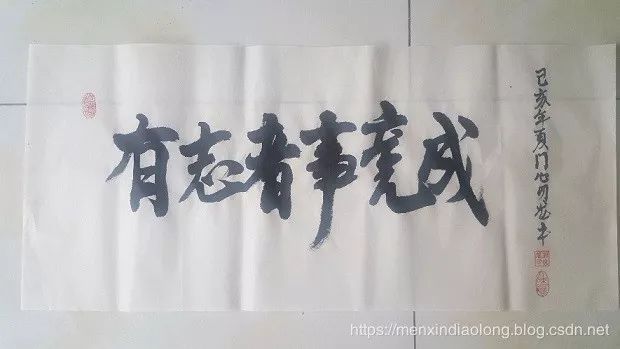 有志者事竟成
己亥年夏门心叼龙书
https://menxindiaolong.blog.csdn.net